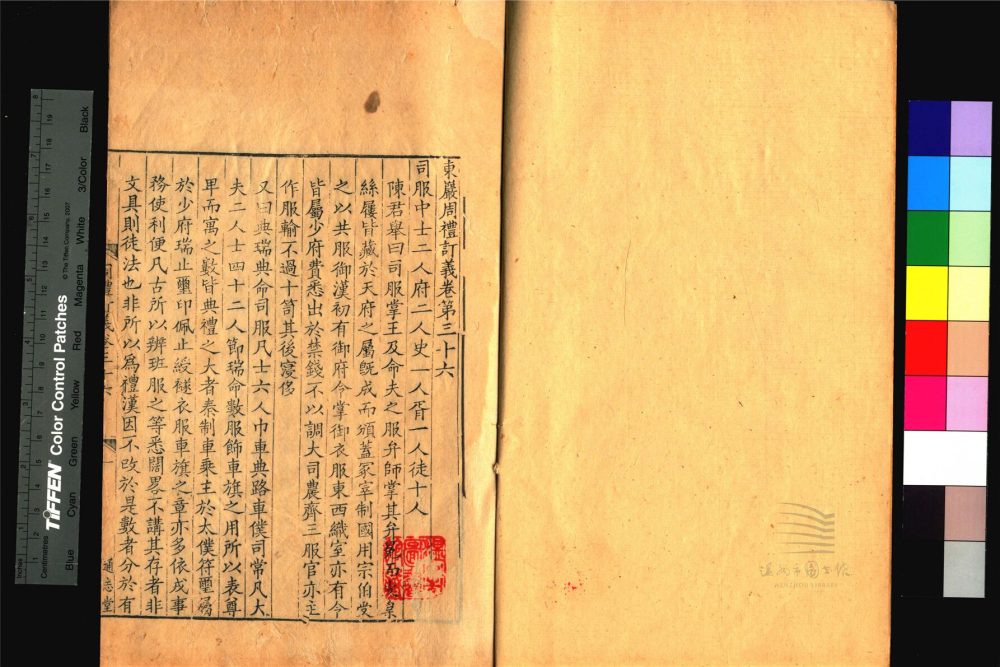 東巖周禮訂義卷第三十六
司服中士二人府二人史一人胥一人徒十人
陳君舉曰司服掌王及命夫之服弁師掌其弁冕
絲屨皆藏於天府之屬旣成而頒蓋冢宰制國用宗伯受
之以共服御漢初有御府令掌御衣服東西織室亦有令
皆屬少府費悉出於禁錢不以調大司農齊三服官亦主
作服輸不過十笥其後寖侈
又曰典瑞典命司服凡士六人巾車典路車僕司常凡大
夫二人士四十二人節瑞命數服飾車旗之用所以表尊
卑而寓之數皆典禮之大者秦制車乘主於太僕符璽屬
於少府瑞止璽印佩止綬襚衣服車旗之章亦多依戎事
務使利便凡古所以辨班服之等悉闊畧不講其存者非
文具則徒法也非所以爲禮漢因不改於是數者分於有
周禮訂義卷三十六
通志堂
TIFFEN Color Control Patches
© The Tiffen Company, 2007
Blue
Cyan
Green
Yellow
Red
Magenta
White
3/Color
Black
Inches
Centimetres
温州市图书馆
WENZHOU LIBRARY